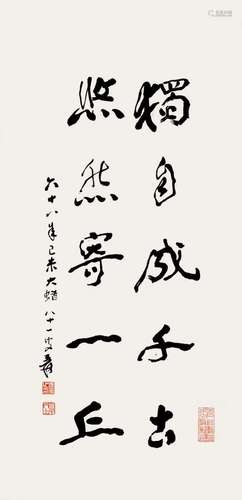 獨自成千古
悠然寄一丘
六十八年己未大蜡八十一叟爰